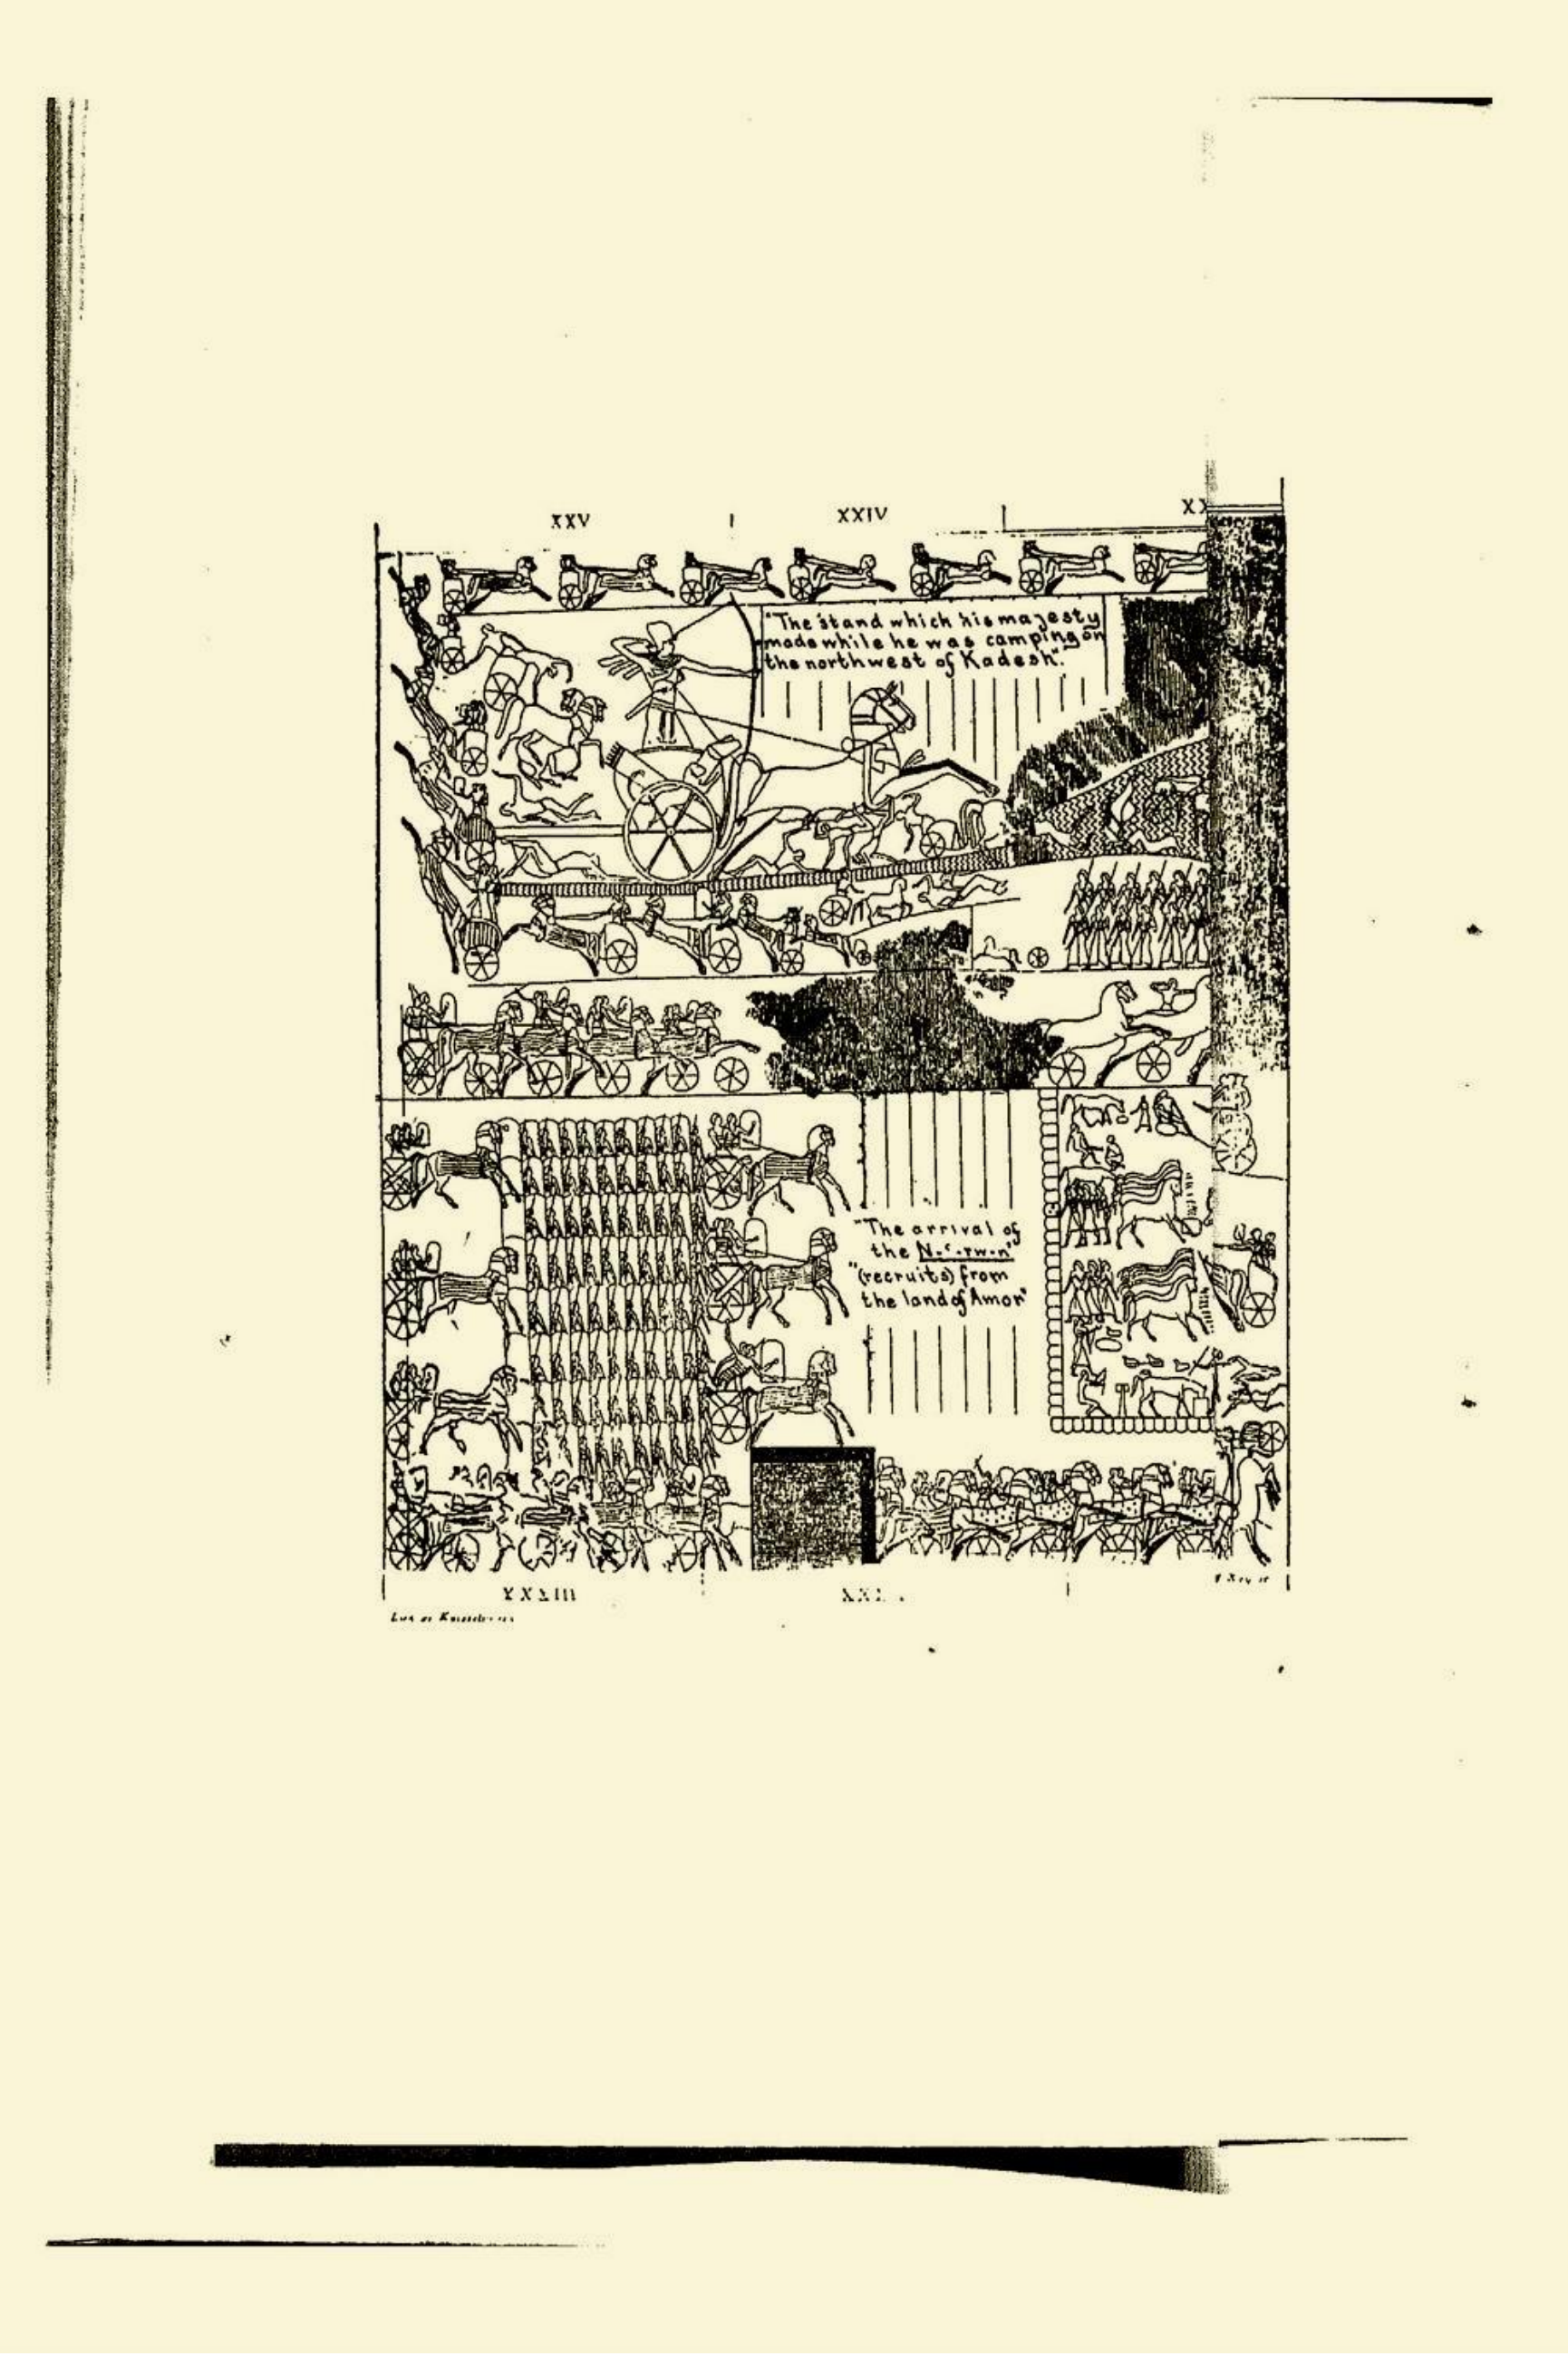 XXV XXIV
"The stand which his majesty
made while he was camping on
the northwest of Kadesh".
"The arrival of
the N.ʿ.rw.n"
"(recruits) from
the land of Amor"